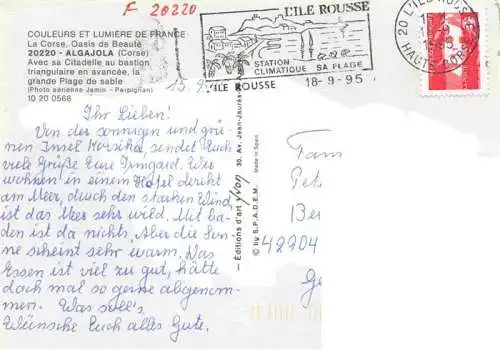 F 20220
COULEURS ET LUMIÈRE DE FRANCE
La Corse, Oasis de Beauté
20220 - ALGAJOLA (Corse)
Avec sa Citadelle au bastion
triangulaire en avancée, la
grande Plage de sable
(Photo aérienne Jamin - Perpignan)
10 20 0566
L'ILE ROUSSE
STATION
CLIMATIQUE SA PLAGE
L'ILE ROUSSE 18-9-95
20 L'ILE ROUSSE
HAUTE CORSE
15.9.
Ihr Lieben!
Von der sonnigen und grü-
nen Insel Korsika, sendet Euch
viele Grüße Eure Irmgard. Wir
wohnen in einem Hotel direkt
am Meer, durch den starken Wind
ist das Meer sehr wild. Mit ba-
den ist da nichts. Aber die Son-
ne scheint sehr warm. Das
Essen ist viel zu gut, hätte
doch mal so gerne abgenom-
men. Was soll's.
Wünsche Euch alles Gute.
Editions d'art yvon 30, Av. Jean-Jaurès
© by S.P.A.D.E.M. Made in Spain
Fam
Pet
Be
42204
Ge